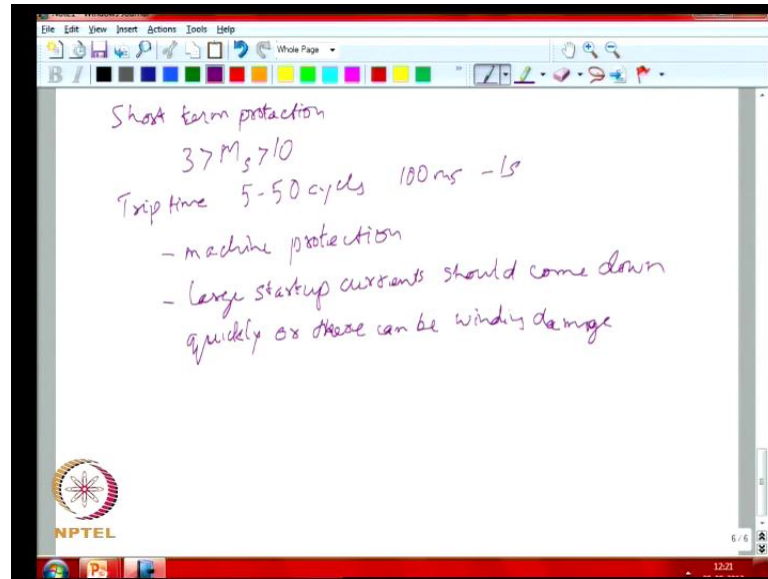 File Edit View Insert Actions Tools Help
Whole Page
B I
Short term protection
3 > Ms > 10
Trip time 5-50 cycls 100 ms - 1s
- machine protection
- large startup currents should come down
quickly or there can be winding damage
NPTEL
6/6
12:21